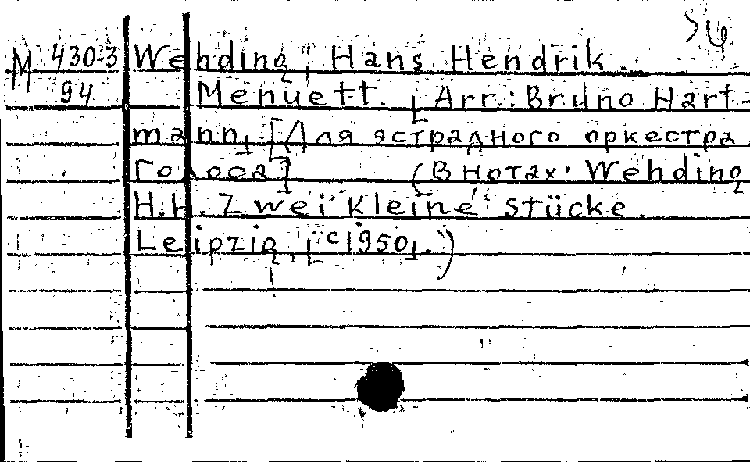 М 430-3 Wehding, Hans Hendrik.
94 Menuett. [Arr.: Bruno Hart-
mann] [Для эстрадного оркестра.
Голоса] (В нотах: Wehding
H.H. Zwei kleine Stücke.
Leipzig, [c 1950].)